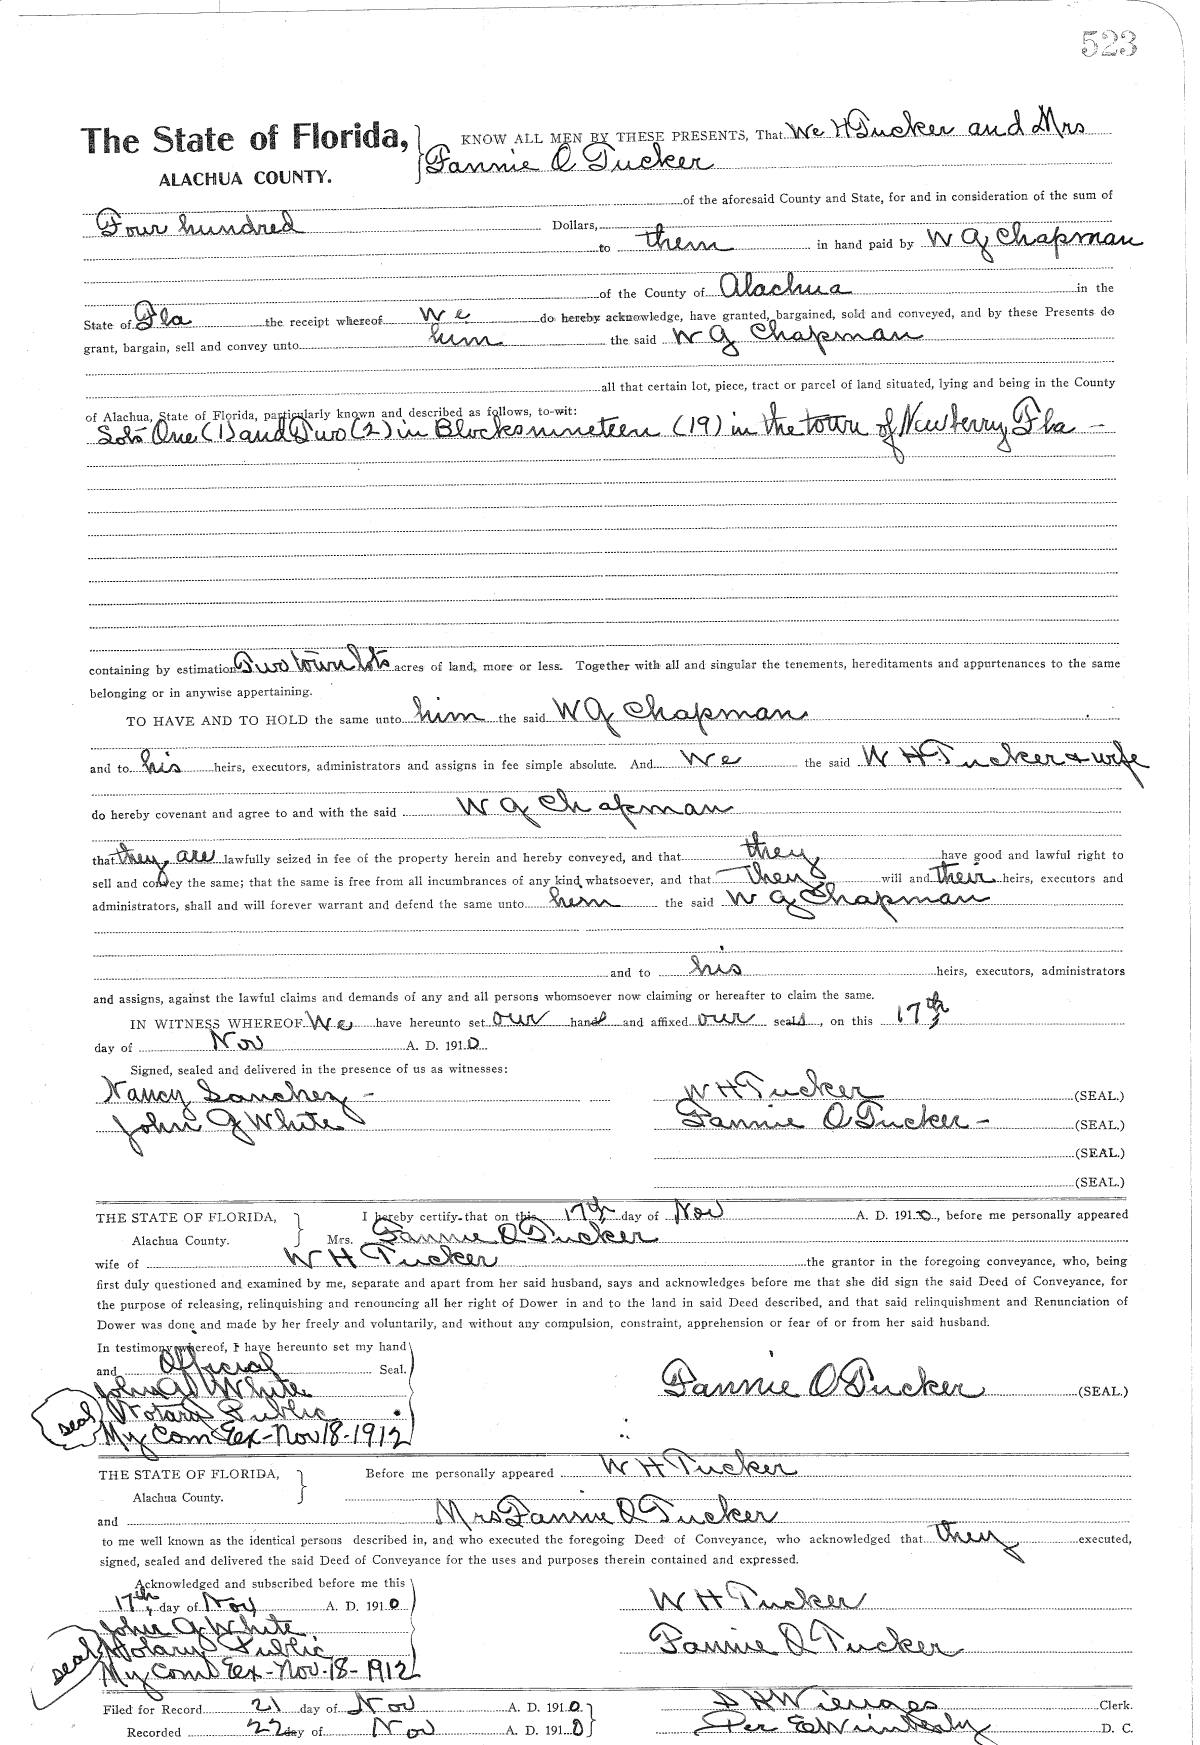 523
The State of Florida, KNOW ALL MEN BY THESE PRESENTS, That We H Tucker and Mrs
ALACHUA COUNTY. Fannie O Tucker
of the aforesaid County and State, for and in consideration of the sum of
Four hundred Dollars,
to them in hand paid by W G Chapman
of the County of Alachua in the
State of Fla the receipt whereof We do hereby acknowledge, have granted, bargained, sold and conveyed, and by these Presents do
grant, bargain, sell and convey unto him the said W G Chapman
all that certain lot, piece, tract or parcel of land situated, lying and being in the County
of Alachua, State of Florida, particularly known and described as follows, to-wit:
Lots One (1) and Two (2) in Blocks nineteen (19) in the town of Newberry Fla —
containing by estimation Two town lots acres of land, more or less. Together with all and singular the tenements, hereditaments and appurtenances to the same
belonging or in anywise appertaining.
TO HAVE AND TO HOLD the same unto him the said W G Chapman
and to his heirs, executors, administrators and assigns in fee simple absolute. And We the said W H Tucker & wife
do hereby covenant and agree to and with the said W G Chapman
that they are lawfully seized in fee of the property herein and hereby conveyed, and that they have good and lawful right to
sell and convey the same; that the same is free from all incumbrances of any kind whatsoever, and that they will and their heirs, executors and
administrators, shall and will forever warrant and defend the same unto him the said W G Chapman
and to his heirs, executors, administrators
and assigns, against the lawful claims and demands of any and all persons whomsoever now claiming or hereafter to claim the same.
IN WITNESS WHEREOF We have hereunto set our hand and affixed our seals, on this 17th
day of Nov A. D. 1910
Signed, sealed and delivered in the presence of us as witnesses:
Nancy Sanchez — W H Tucker (SEAL.)
John G White Fannie O Tucker — (SEAL.)
(SEAL.)
(SEAL.)
THE STATE OF FLORIDA, I hereby certify that on this 17th day of Nov A. D. 1910, before me personally appeared
Alachua County. Mrs. Fannie O Tucker
wife of W H Tucker the grantor in the foregoing conveyance, who, being
first duly questioned and examined by me, separate and apart from her said husband, says and acknowledges before me that she did sign the said Deed of Conveyance, for
the purpose of releasing, relinquishing and renouncing all her right of Dower in and to the land in said Deed described, and that said relinquishment and Renunciation of
Dower was done and made by her freely and voluntarily, and without any compulsion, constraint, apprehension or fear of or from her said husband.
In testimony whereof, I have hereunto set my hand
and Official Seal.
John G White Fannie O Tucker (SEAL.)
seal Notary Public
My Com Ex - Nov 18 - 1912
THE STATE OF FLORIDA, Before me personally appeared W H Tucker
Alachua County.
and Mrs Fannie O Tucker
to me well known as the identical persons described in, and who executed the foregoing Deed of Conveyance, who acknowledged that they executed,
signed, sealed and delivered the said Deed of Conveyance for the uses and purposes therein contained and expressed.
Acknowledged and subscribed before me this
17th, day of Nov A. D. 1910 W H Tucker
John G White
seal Notary Public Fannie O Tucker
My Com Ex - Nov - 18 - 1912
Filed for Record 21 day of Nov A. D. 1910 Wienges Clerk.
Recorded 22 day of Nov A. D. 1910 Per E Wimberly D. C.